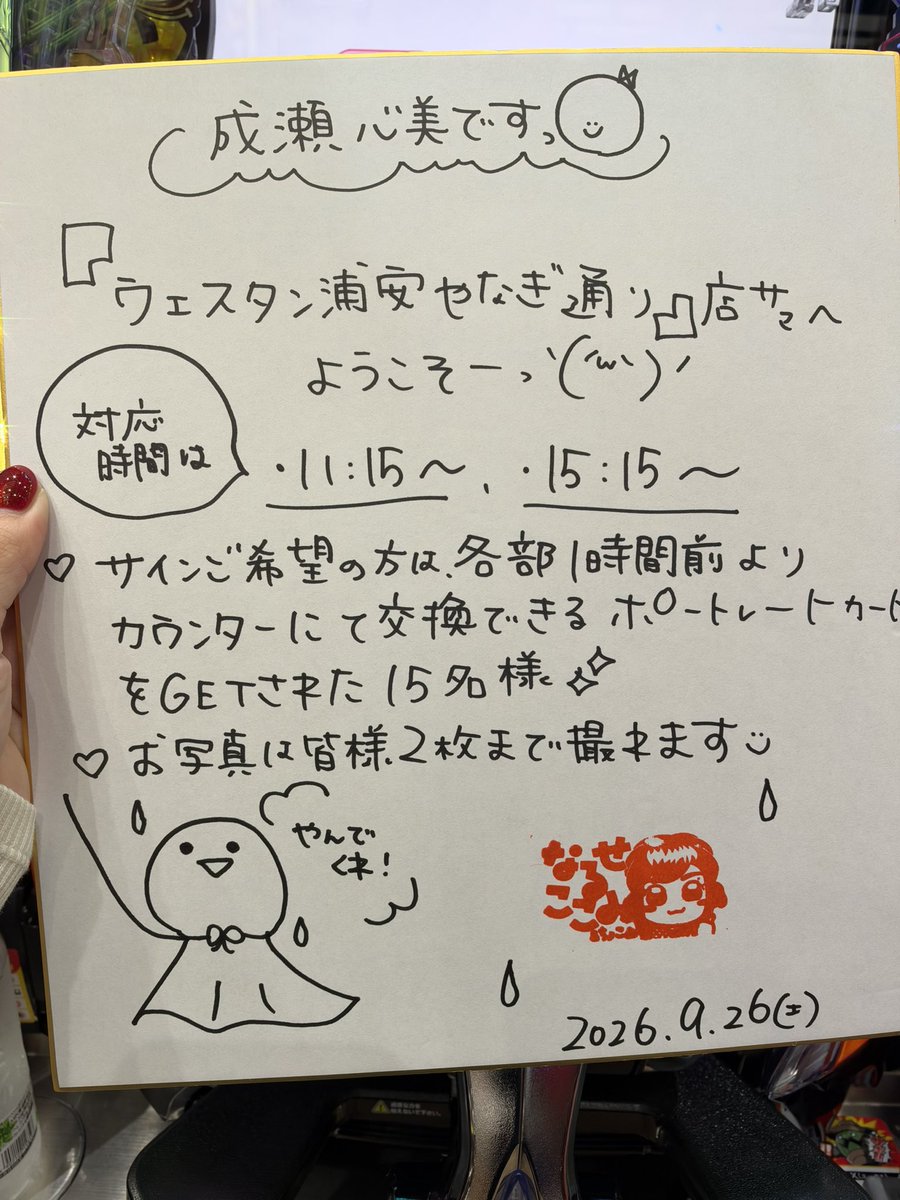 成瀬心美ですっ
『ウェスタン浦安やなぎ通り』店サマへ
ようこそーっヽ(´ω｀)ノ
対応
時間は
・11:15〜、・15:15〜
♡ サインご希望の方は、各部1時間前より
カウンターにて交換できるポートレートカード
をGETされた15名様
♡ お写真は皆様、2枚まで撮れます
やんで
くれ！
なるせ
ここみ
2026.9.26(土)